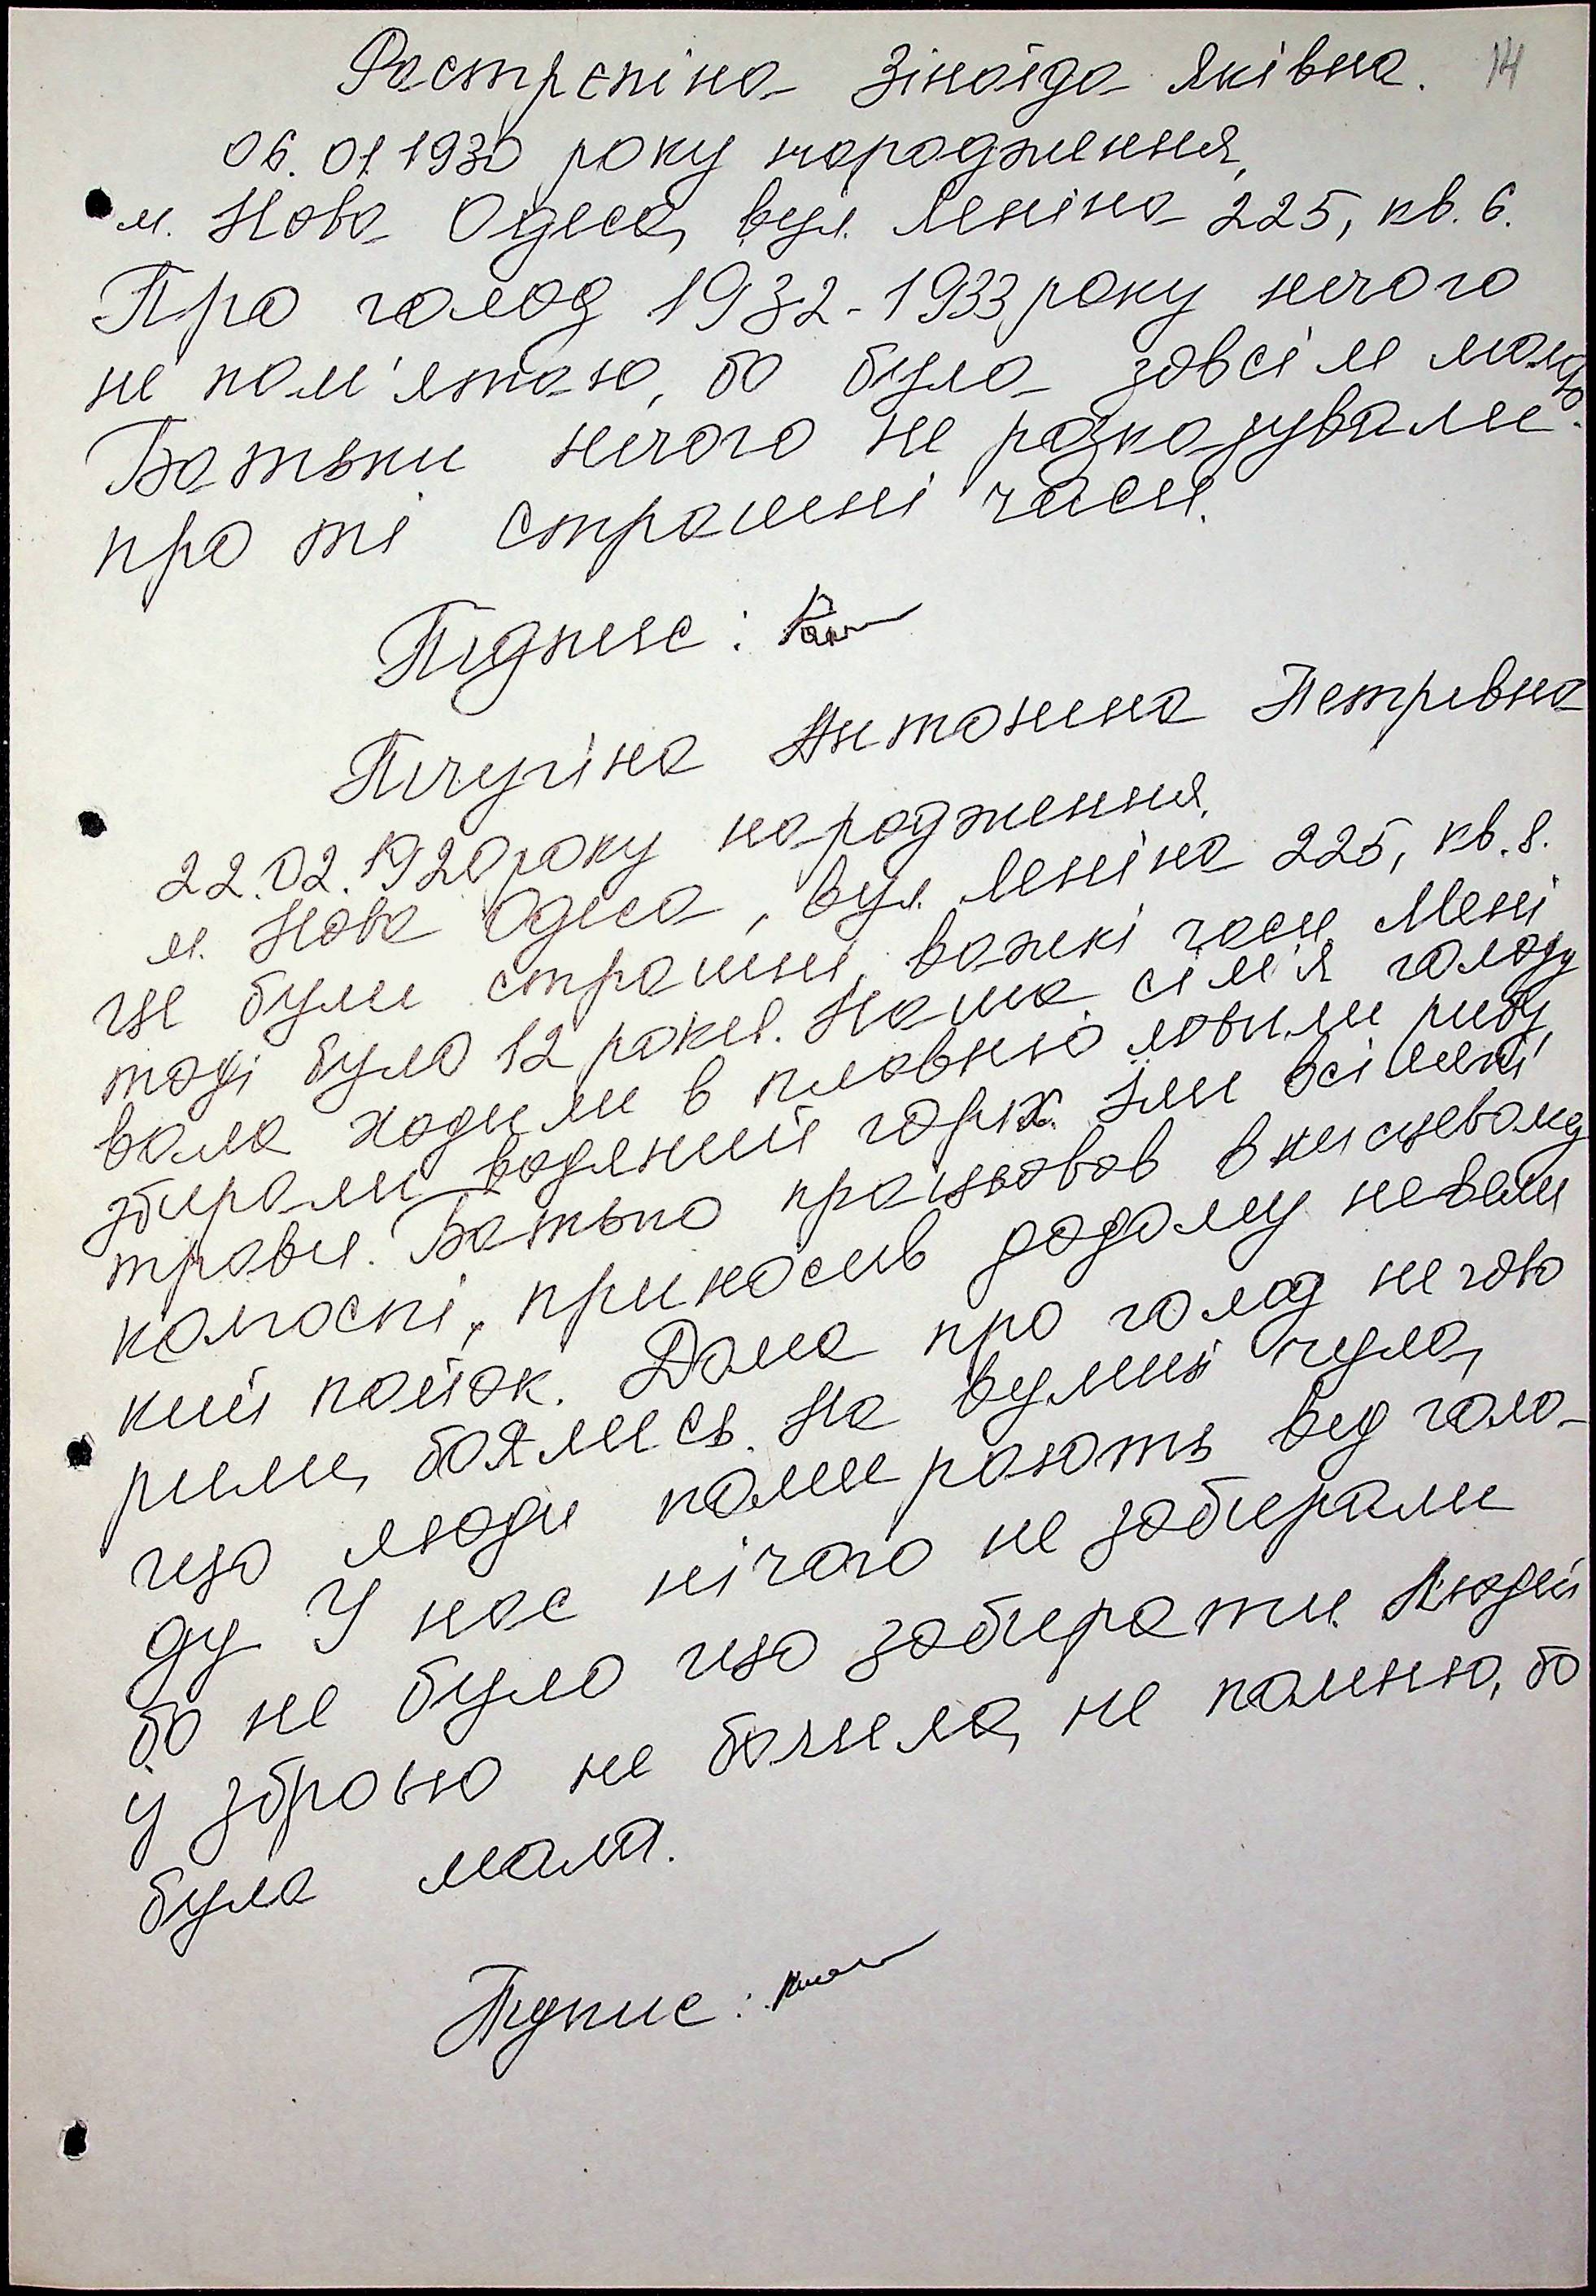 Растрєпіна Зіноїда Яківна. 14
06.01.1930 року народження,
м. Нова Одеса, вул. Леніна 225, кв. 6.
Про голод 1932-1933 року нічого
не пом'ятаю, бо була зовсім малою
Батьки нічого не розказували
про ті страшні часи.
Підпис:
Пічугіна Антоніна Петрівна
22.02.1920 року народження.
м. Нова Одеса, вул. Леніна 225, кв. 8.
це були страшні, важкі часи Мені
тоді було 12 років. Наша сім'я голоду
вала ходили в плавню ловили рибу,
збирали водяний горіх. Їли всілякі
трави. Батько працював в місцевому
колгоспі, приносив додому невели
кий пайок. Дома про голод не гово
рили, боялись. На вулиці чула,
що люди помирають від голо-
ду У нас нічого не забирали
бо не було що забирати. Людей
у зброью не бачила, не помню, бо
була мала.
Підпис: